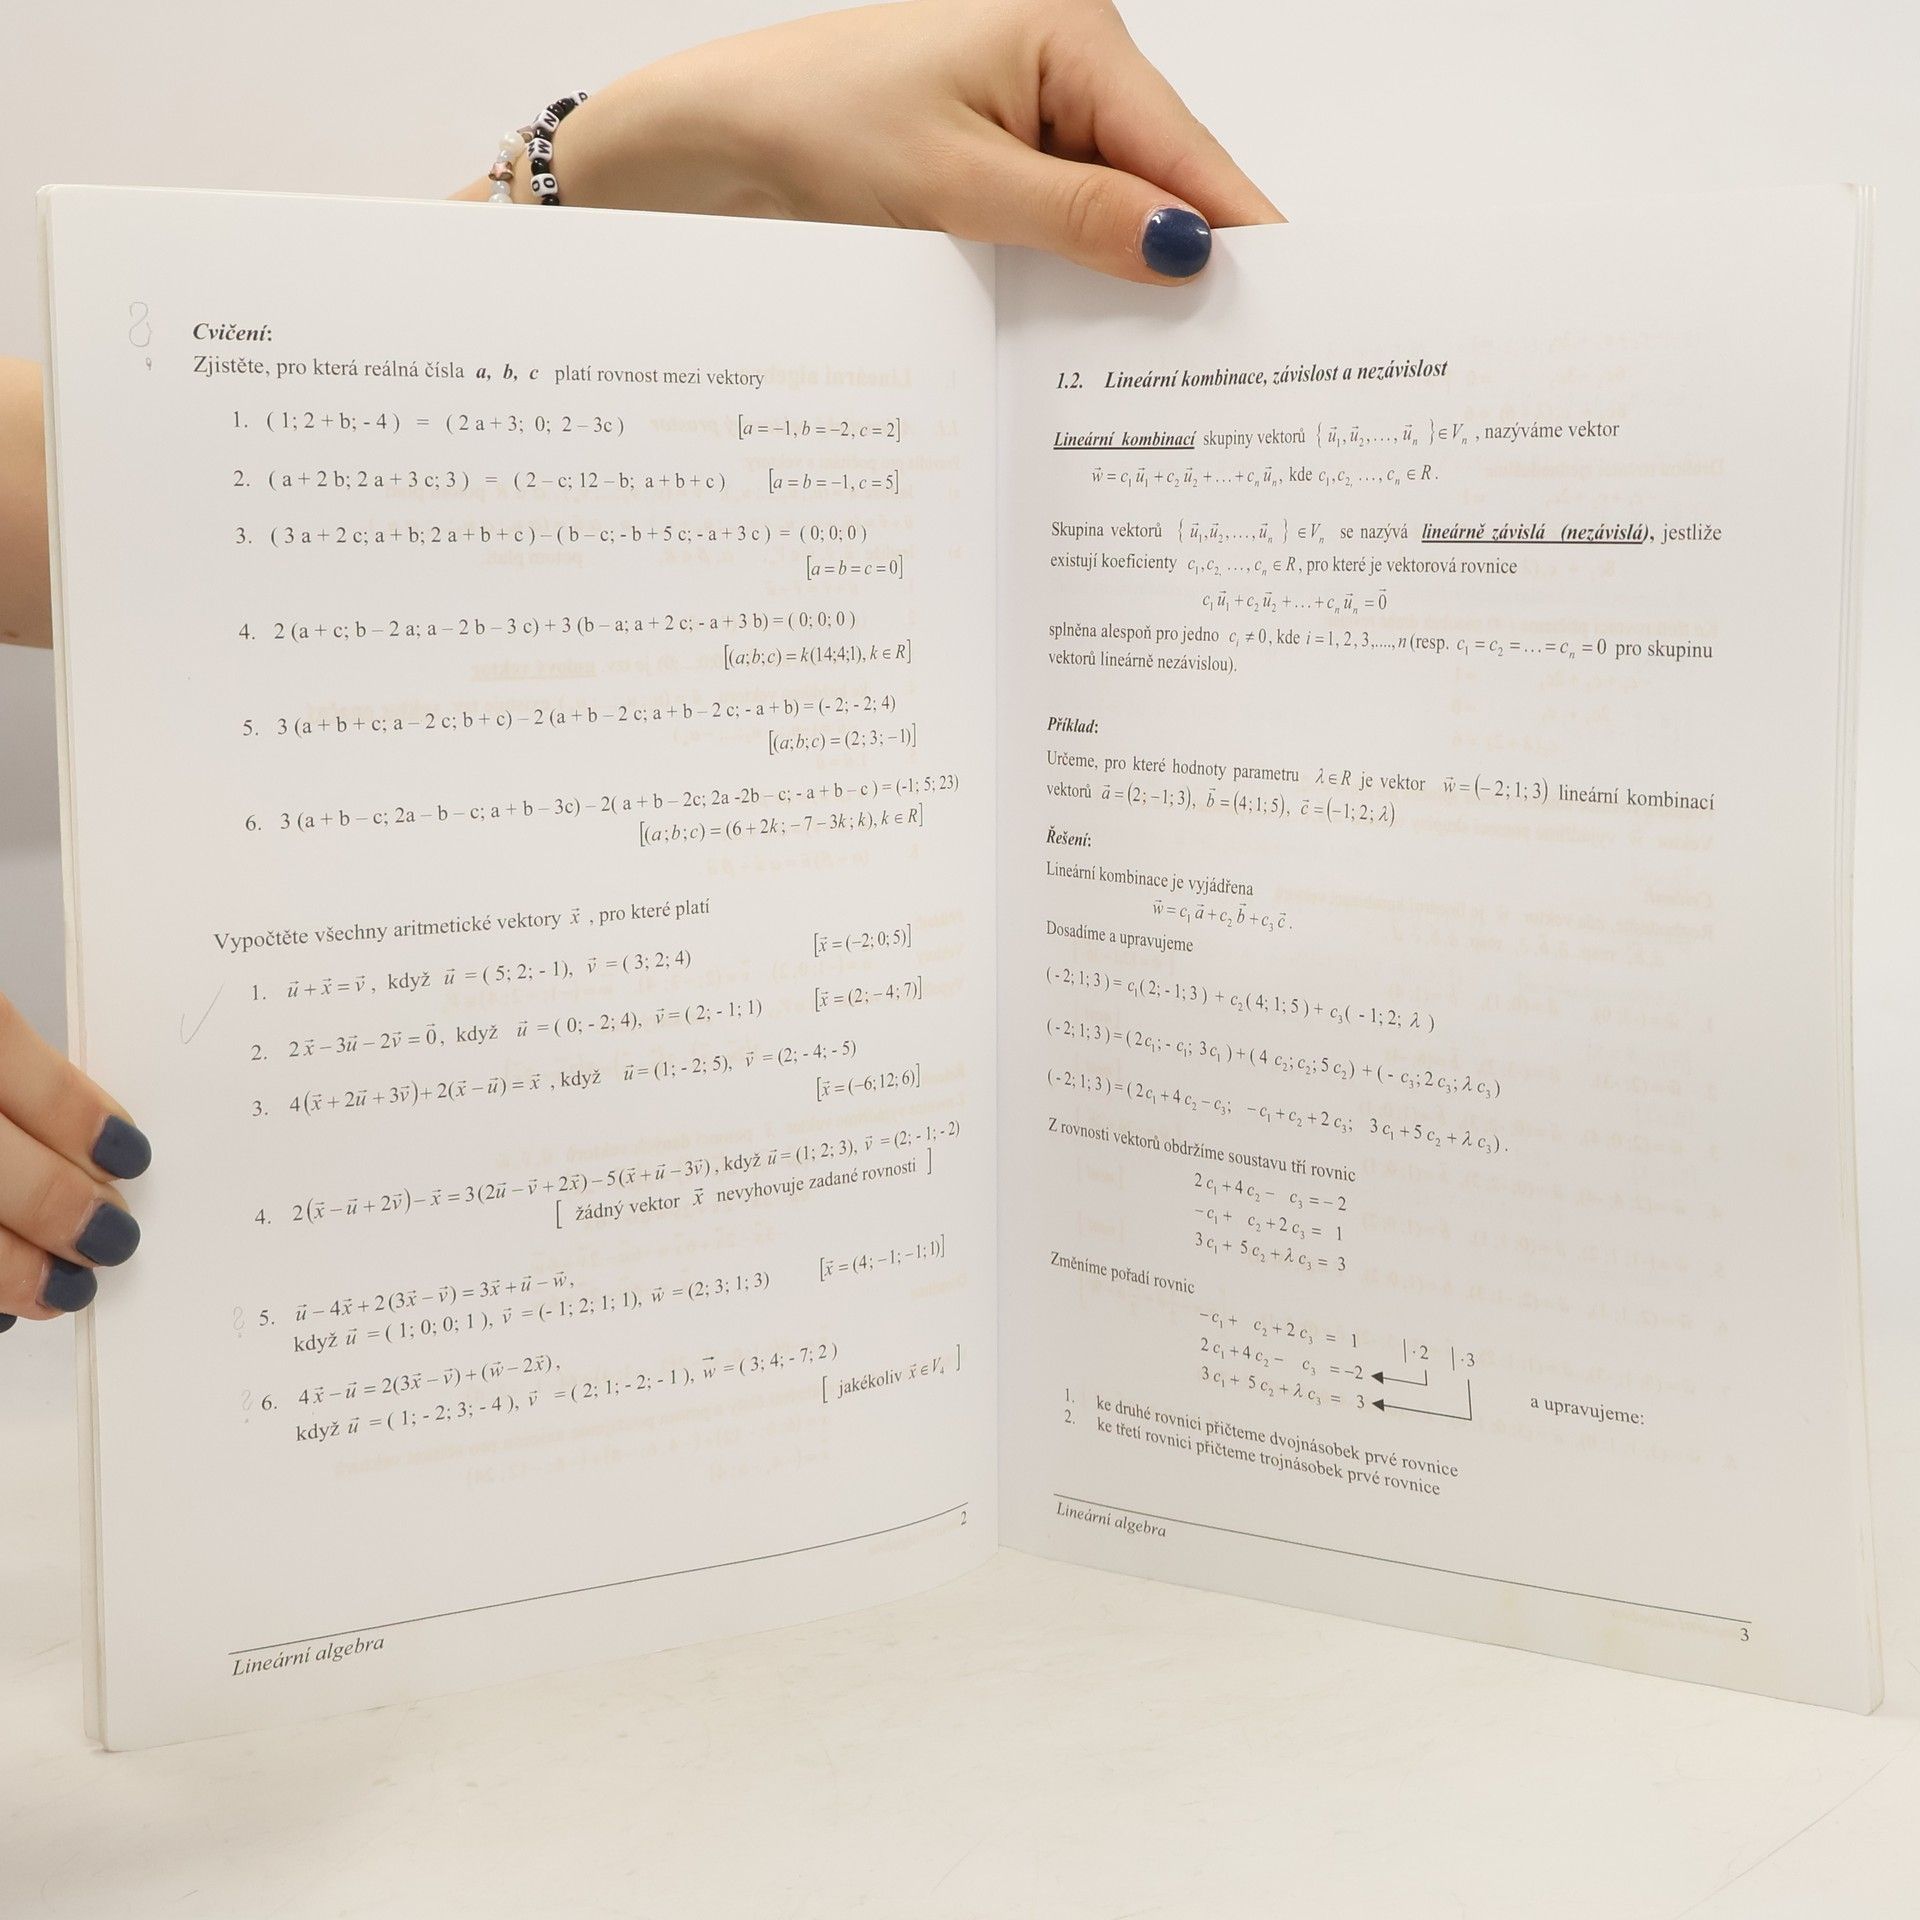 Cvičení:
Zjistěte, pro která reálná čísla a, b, c platí rovnost mezi vektory
1. ( 1; 2 + b; - 4 ) = ( 2 a + 3; 0; 2 – 3c ) [a = −1, b = −2, c = 2]
2. ( a + 2 b; 2 a + 3 c; 3 ) = ( 2 – c; 12 – b; a + b + c ) [a = b = −1, c = 5]
3. ( 3 a + 2 c; a + b; 2 a + b + c ) – ( b – c; - b + 5 c; - a + 3 c ) = ( 0; 0; 0 )
[a = b = c = 0]
4. 2 (a + c; b – 2 a; a – 2 b – 3 c) + 3 (b – a; a + 2 c; - a + 3 b) = ( 0; 0; 0 )
[(a;b;c) = k(14;4;1), k ∈ R]
5. 3 (a + b + c; a – 2 c; b + c) – 2 (a + b – 2 c; a + b – 2 c; - a + b) = (- 2; - 2; 4)
[(a;b;c) = (2; 3; −1)]
6. 3 (a + b – c; 2a – b – c; a + b – 3c) – 2( a + b – 2c; 2a -2b – c; - a + b – c ) = (-1; 5; 23)
[(a;b;c) = (6 + 2k; −7 − 3k; k), k ∈ R]
Vypočtěte všechny aritmetické vektory x⃗ , pro které platí
1. u⃗ + x⃗ = v⃗ , když u⃗ = ( 5; 2; - 1), v⃗ = ( 3; 2; 4) [x⃗ = (−2; 0; 5)]
2. 2x⃗ − 3u⃗ − 2v⃗ = 0⃗, když u⃗ = ( 0; - 2; 4), v⃗ = ( 2; - 1; 1) [x⃗ = (2; −4; 7)]
3. 4(x⃗ + 2u⃗ + 3v⃗) + 2(x⃗ − u⃗) = x⃗ , když u⃗ = (1; - 2; 5), v⃗ = (2; - 4; - 5)
[x⃗ = (−6; 12; 6)]
4. 2(x⃗ − u⃗ + 2v⃗) − x⃗ = 3(2u⃗ − v⃗ + 2x⃗) − 5(x⃗ + u⃗ − 3v⃗) , když u⃗ = (1; 2; 3), v⃗ = (2; - 1; - 2)
[ žádný vektor x⃗ nevyhovuje zadané rovnosti ]
5. u⃗ − 4x⃗ + 2(3x⃗ − v⃗) = 3x⃗ + u⃗ − w⃗, [x⃗ = (4; −1; −1; 1)]
když u⃗ = ( 1; 0; 0; 1 ), v⃗ = (- 1; 2; 1; 1), w⃗ = (2; 3; 1; 3)
6. 4x⃗ − u⃗ = 2(3x⃗ − v⃗) + (w⃗ − 2x⃗),
když u⃗ = ( 1; - 2; 3; - 4 ), v⃗ = ( 2; 1; - 2; - 1 ), w⃗ = ( 3; 4; - 7; 2 ) [ jakékoliv x⃗ ∈ V₄ ]
2
Lineární algebra
1.2. Lineární kombinace, závislost a nezávislost
Lineární kombinací skupiny vektorů { u⃗₁, u⃗₂, …, u⃗ₙ } ∈ Vₙ , nazýváme vektor
w⃗ = c₁ u⃗₁ + c₂ u⃗₂ + … + cₙ u⃗ₙ, kde c₁, c₂, …, cₙ ∈ R .
Skupina vektorů { u⃗₁, u⃗₂, …, u⃗ₙ } ∈ Vₙ se nazývá lineárně závislá (nezávislá), jestliže
existují koeficienty c₁, c₂, …, cₙ ∈ R , pro které je vektorová rovnice
c₁ u⃗₁ + c₂ u⃗₂ + … + cₙ u⃗ₙ = 0⃗
splněna alespoň pro jedno cᵢ ≠ 0 , kde i = 1, 2, 3,...., n (resp. c₁ = c₂ = … = cₙ = 0 pro skupinu
vektorů lineárně nezávislou).
Příklad:
Určeme, pro které hodnoty parametru λ ∈ R je vektor w⃗ = (− 2; 1; 3) lineární kombinací
vektorů a⃗ = (2; −1; 3), b⃗ = (4; 1; 5), c⃗ = (−1; 2; λ)
Řešení:
Lineární kombinace je vyjádřena
w⃗ = c₁ a⃗ + c₂ b⃗ + c₃ c⃗ .
Dosadíme a upravujeme
( - 2; 1; 3 ) = c₁( 2; - 1; 3 ) + c₂( 4; 1; 5 ) + c₃( - 1; 2; λ )
( - 2; 1; 3 ) = ( 2c₁; - c₁; 3c₁ ) + ( 4 c₂; c₂; 5 c₂) + ( - c₃; 2 c₃; λ c₃)
( - 2; 1; 3 ) = ( 2c₁ + 4 c₂ − c₃; − c₁ + c₂ + 2 c₃; 3 c₁ + 5 c₂ + λ c₃ ) .
Z rovnosti vektorů obdržíme soustavu tří rovnic
2 c₁ + 4 c₂ − c₃ = − 2
− c₁ + c₂ + 2 c₃ = 1
3 c₁ + 5 c₂ + λ c₃ = 3
Změníme pořadí rovnic
− c₁ + c₂ + 2 c₃ = 1 | · 2 | · 3
2 c₁ + 4 c₂ − c₃ = −2
3 c₁ + 5 c₂ + λ c₃ = 3 a upravujeme:
1. ke druhé rovnici přičteme dvojnásobek prvé rovnice
2. ke třetí rovnici přičteme trojnásobek prvé rovnice
Lineární algebra
3